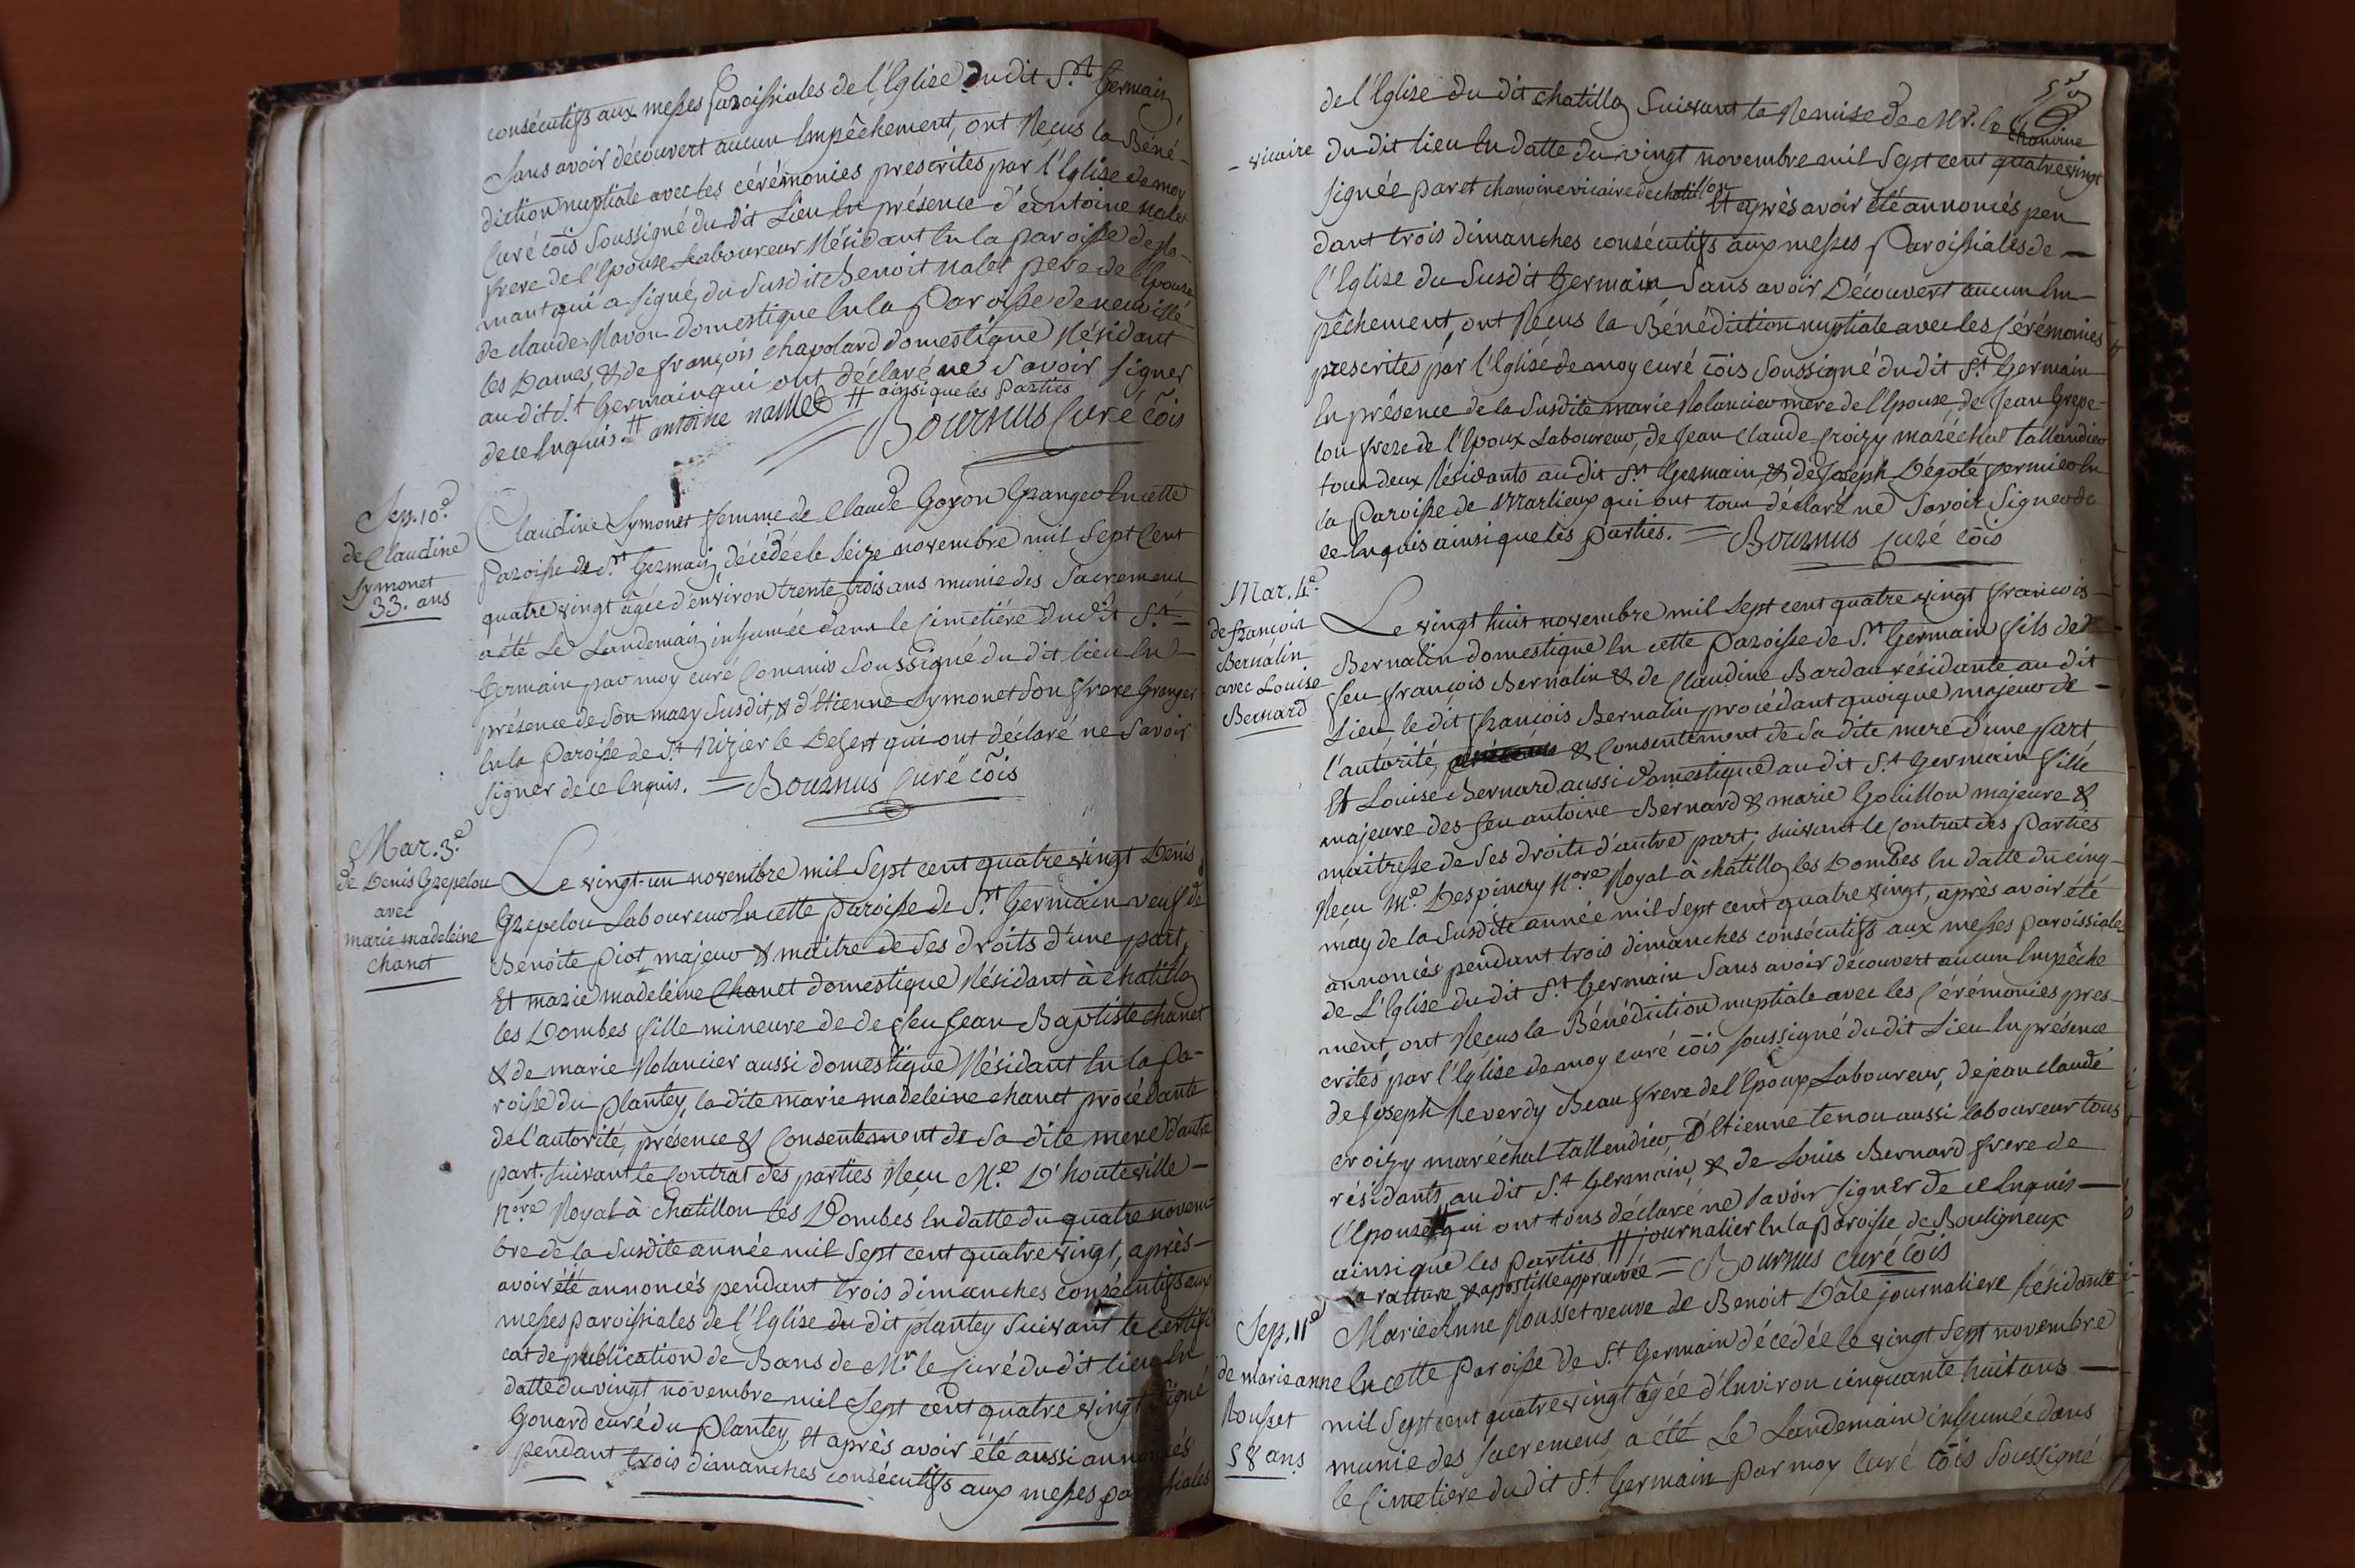 consécutifs aux messes Paroissiales de l'Eglise du dit St. Germain
Sans avoir découvert aucun Empêchement, ont Reçus la Béné-
diction nuptiale avec les cérémonies prescrites par l'Eglise de moy
Curé cõis Soussigné du dit Lieu En présence d'antoine nalet
frere de l'Epouse Laboureur Résidant En la paroisse de
mant qui a signé, du Susdit Benoit nalet pere de l'Epouse
de claude Navon domestique En la Paroisse de neuville
les Dames, & de françois chapolard domestique Résidant
au dit St. Germain qui ont déclaré ne Savoir signer
de ce Enquis. # antoine nallet # ainsi que les Parties
Bournus Curé cõis
Sep. 10e.
de Claudine
Symonet
33. ans
Claudine Symonet femme de Claude Goyon Granger En cette
Paroisse de St. Germain, décédée le Seize novembre mil Sept Cent
quatre vingt âgée d'environ trente trois ans munie des Sacremens
a été Le Landemain inhumée dans le Cimetiére du dit St. =
Germain par moy curé Commis Soussigné du dit lieu En
présence de Son mary Susdit, & d'Etienne Symonet Son frere Granger
En la Paroisse de St. Nizier le Desert qui ont déclaré ne Savoir
signer de ce Enquis. = Bournus Curé cõis
Mar. 3.e
de Denis Grepelou
avec
marie madeleine
chanet
Le vingt-un novembre mil Sept cent quatre vingt Denis
Grepelou Laboureur En cette Paroisse de St. Germain veuf de
Benoite Piot majeur & maitre de Ses droits d'une part,
Et marie madeleine Chanet domestique Résidant à chatillon
les Dombes fille mineure de de feu Jean Baptiste chanet
& de marie Rolancier aussi domestique Résidant En la Pa-
roisse du Plantey, la dite marie madeleine chanet procédante
de l'autorité, présence & Consentement de Sa dite mere d'autre
part, Suivant le Contrat des parties Reçu Me. D'houteville -
Nore Royal à Chatillon les Dombes En datte du quatre novem
bre de la Susdite année mil Sept cent quatre vingt, après -
avoir été annoncés pendant trois dimanches consécutifs aux
messes paroissiales de l'Eglise du dit plantey Suivant le certifi
cat de publication de Bans de Mr. le Curé du dit lieu En
datte du vingt novembre mil Sept cent quatre vingt Signé
Gonard curé du Plantey, Et après avoir été aussi annoncés
pendant trois dimanches consécutifs aux messes paroissiales
de l'Eglise du dit chatillon Suivant la Remise de Mr. le chanoine
- vicaire du dit lieu En datte du vingt novembre mil Sept cent quatre vingt
signée par et chanoine vicaire de chatillon Et après avoir été annoncés pen
dant trois dimanches consécutifs aux messes Paroissiales de -
l'Eglise du Susdit Germain Sans avoir Découvert aucun Em-
pêchement, ont Reçus la Bénédiction nuptiale avec les Cérémonies
prescrites par l'Eglise de moy curé cõis Soussigné du dit St. Germain
En présence de la Susdite marie Rolancier mere de l'Epouse, de Jean Grepe-
lou frere de l'Epoux Laboureur, de Jean Claude Croizy maréchal tallandier
tous deux Résidants au dit St. Germain, & de Joseph Dégoté fermier En
la Paroisse de Marlieux qui ont tous déclaré ne Savoir Signer de
ce Enquis ainsi que les parties. = Bournus curé cõis
Mar. 4.e
de françois
Bernalin
avec Louise
Bernard
Le vingt huit novembre mil Sept cent quatre vingt francois
Bernalin domestique En cette Paroisse de St. Germain fils de
feu francois Bernalin & de Claudine Bardau résidante au dit
Lieu, le dit francois Bernalin procédant quoique majeur de -
l'autorité, & Consentement de Sa dite mere d'une part
Et Louise Bernard aussi domestique au dit St. Germain fille
majeure des feu antoine Bernard & marie Gouillon majeure &
maitresse de Ses droits d'autre part, suivant le contrat des Parties
Reçu Me. Despiney Nore Royal à chatillon les Dombes En datte du cinq
may de la Susdite année mil Sept cent quatre vingt, après avoir été
annoncés pendant trois dimanches consécutifs aux messes paroissiales
de L'Eglise du dit St. Germain Sans avoir découvert aucun Empêche
ment, ont Reçus la Bénédiction nuptiale avec les Cérémonies pres-
crites par l'Eglise de moy curé cõis soussigné du dit Lieu En présence
de Joseph Reverdy Beau frere de l'Epoux Laboureur, de jean claude
croizy maréchal tallendier, D'Etienne tenou aussi laboureur tous
résidants au dit St. Germain, & de Louis Bernard frere de
l'Epouse # qui ont tous déclaré ne savoir signer de ce Enquis -
ainsi que les Parties # journalier En la Paroisse de Bouligneux
la ratture & apostille approuvée = Bournus curé cõis
Sep. 11e
de marie anne
Rousset
58 ans
Marie Anne Rousset veuve de Benoit Dâle journaliere Résidante
En cette Paroisse de St. Germain décédée le vingt Sept novembre
mil Sept cent quatre vingt âgée d'Environ cinquante huit ans -
munie des Sacremens a été Le Landemain inhumée dans
le Cimetiere du dit St. Germain par moy Curé cõis Soussigné